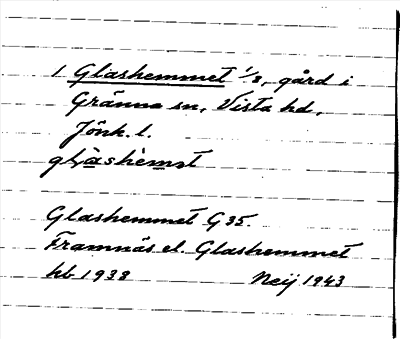 1 Glashemmet 1/8, gård i
Gränna sn, Vista hd,
Jönk. l.
glàshèmət
Glashemmet G35.
Framnäs el. Glashemmet
hb 1938 Neij 1943